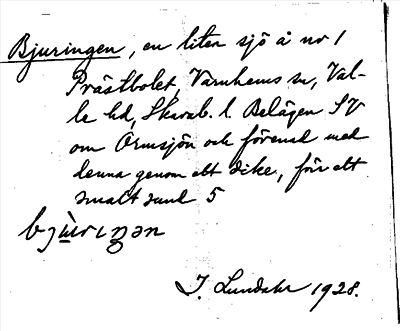 Bjuringen, en liten sjö å no 1
Prästbolet, Varnhems sn, Val-
le hd, Skarab. l. Belägen SV
om Ormsjön och förenad med
denna genom ett dike, förr ett
smalt sund 5
bjùriŋən
J. Lundahl 1928.